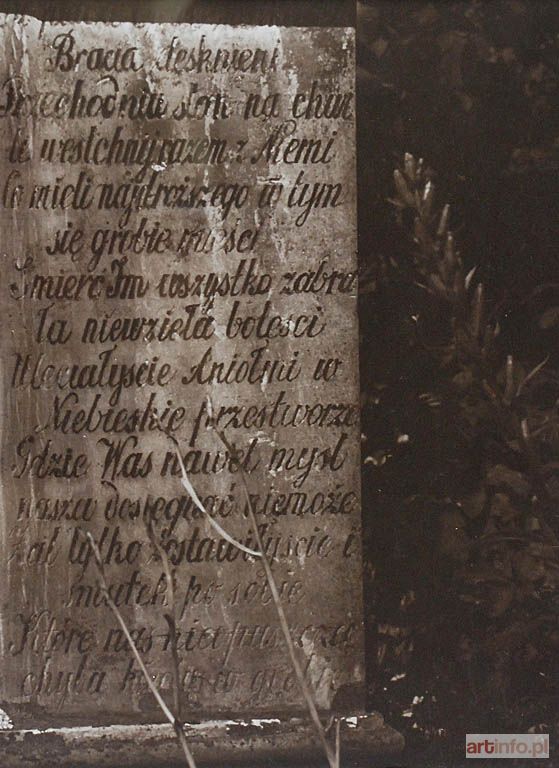 Bracia
Przechodniu ston na chwi
le westchnij razem z Niemi
Co mieli najdroższego w tym
się grobie mieści
Śmierć Im wszystko zabra
ła niewzieła boleści
Uleciałyście Aniołmi w
Niebieskie przestworze
Gdzie Was nawet myśl
nasza dosiegnąć niemoże
żal tylko zostawiłyście i
smutek po sobie
Które nas nie
chyba w
artinfo.pl